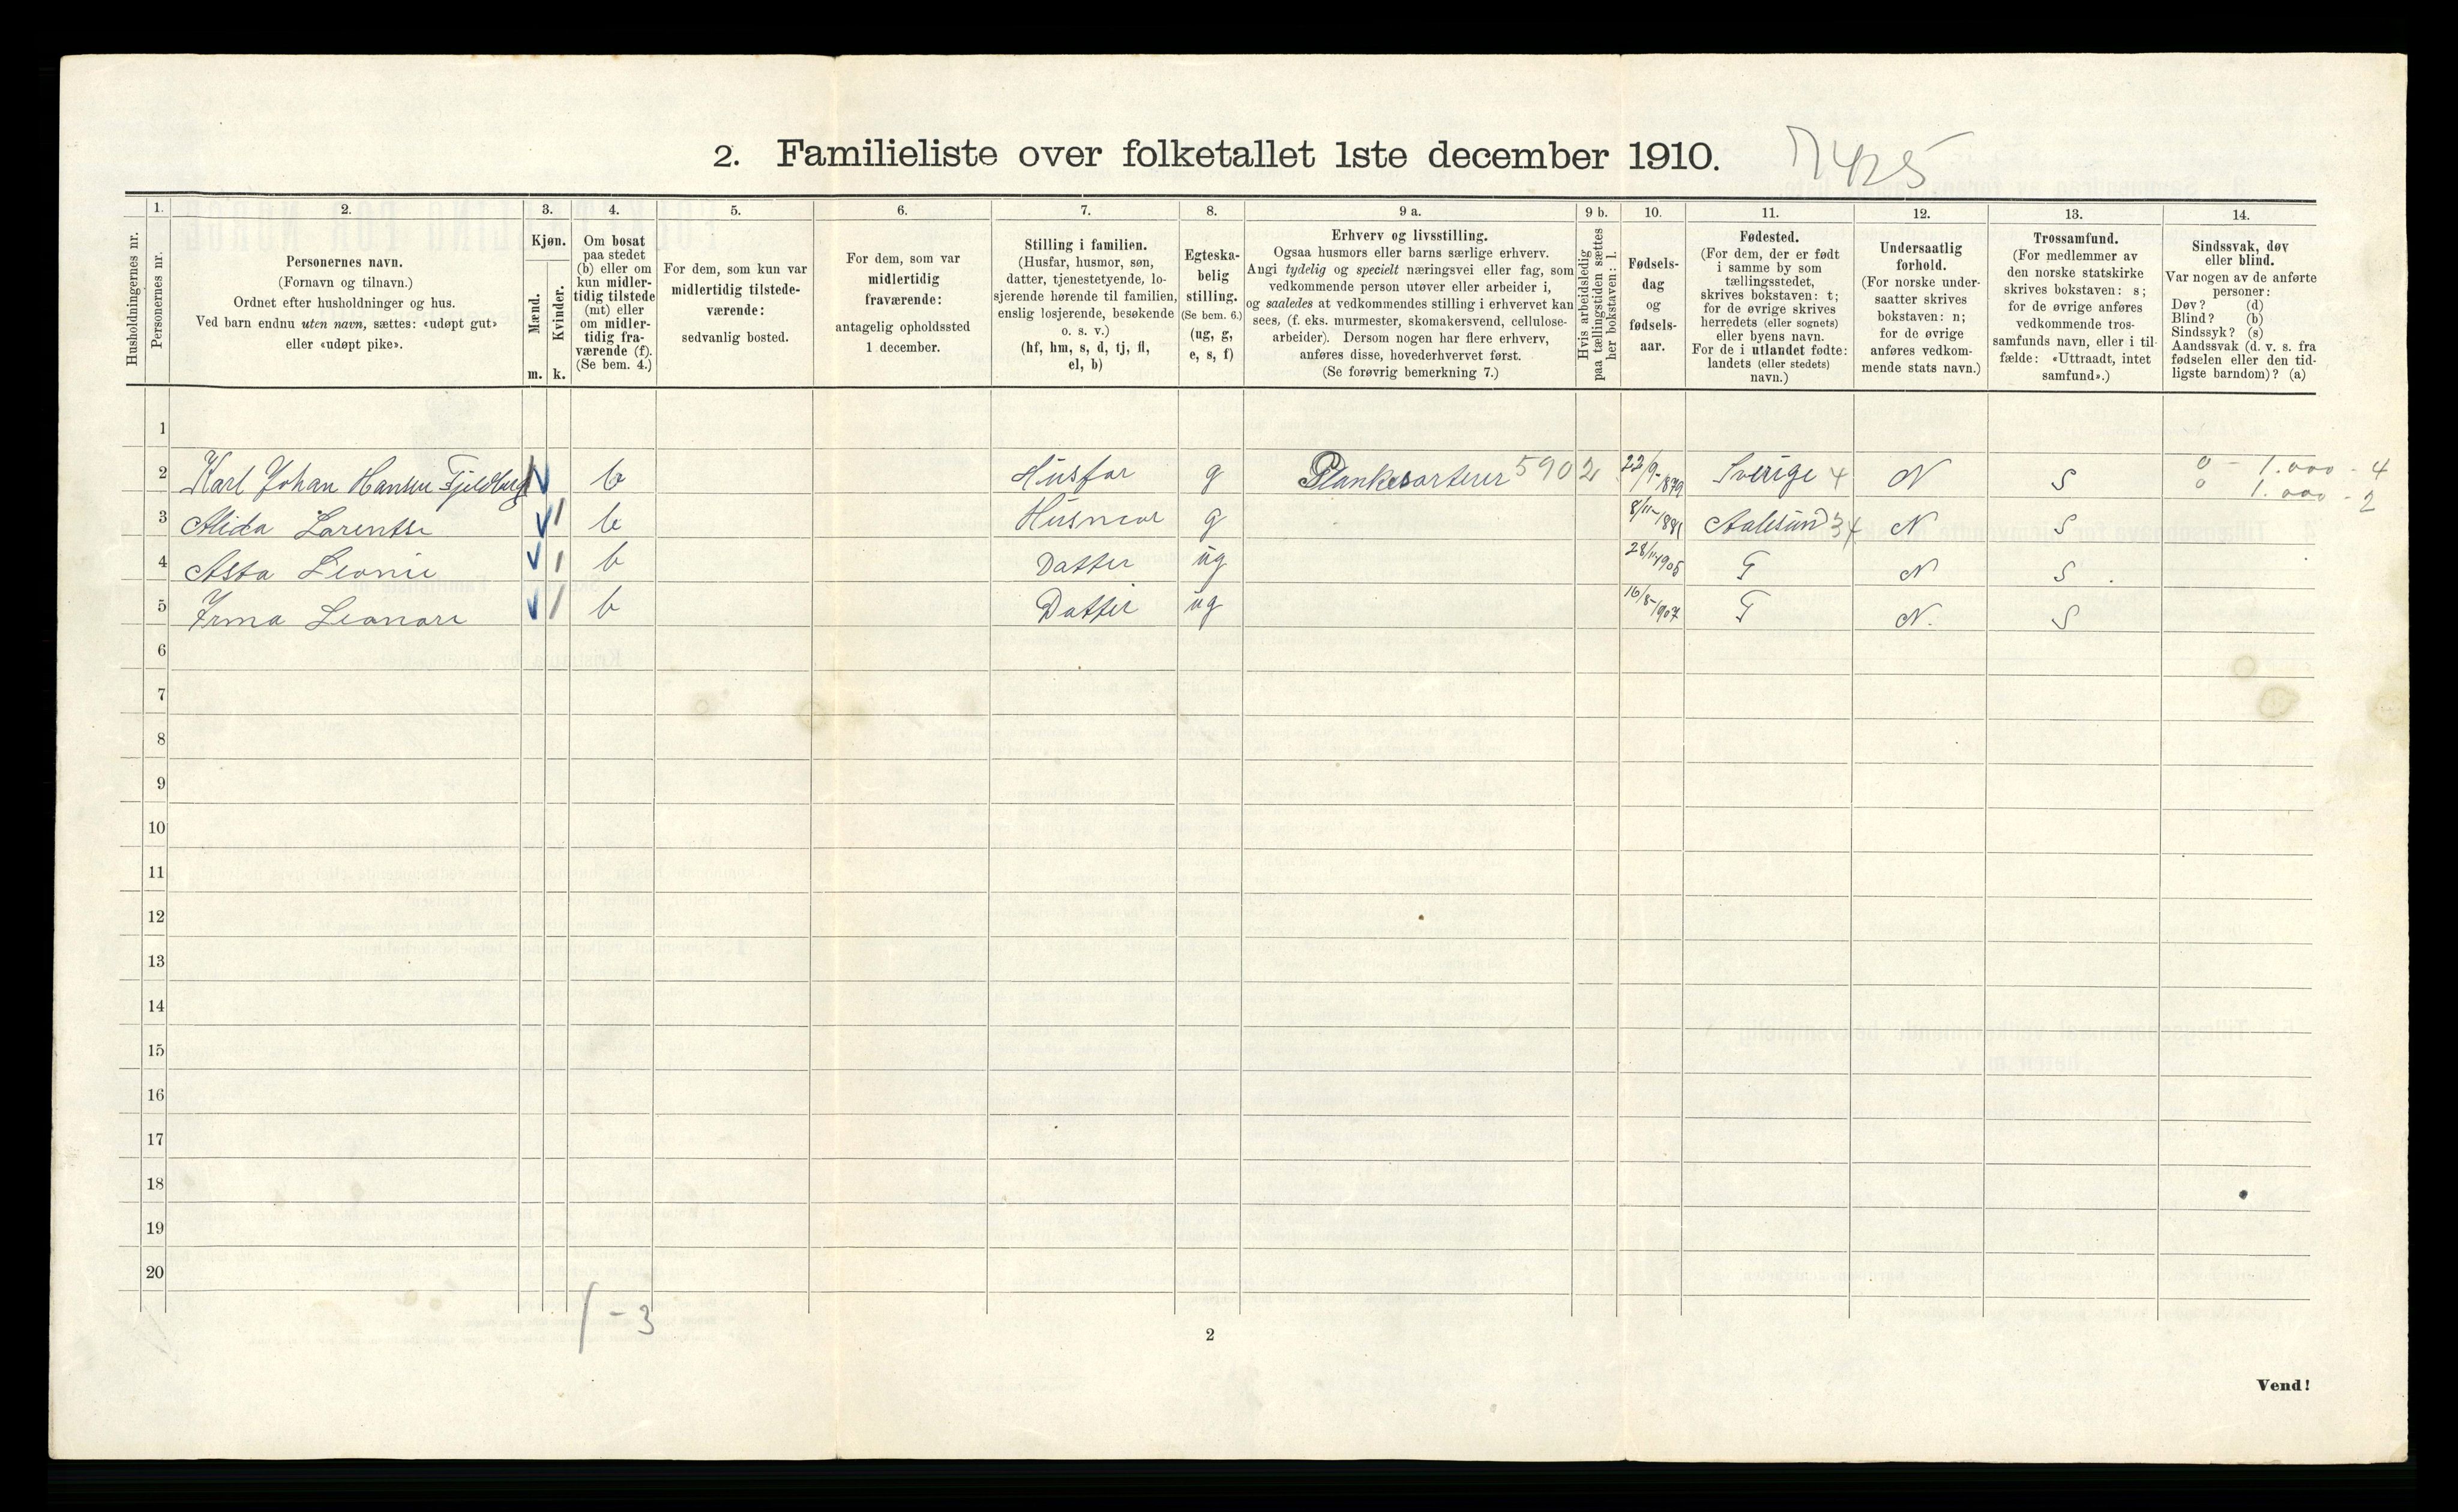 2. Familieliste over folketallet 1ste december 1910. 7425
Husholdningernes nr.
1.
Personernes nr.
2.
Personernes navn.
(Fornavn og tilnavn.)
Ordnet efter husholdninger og hus.
Ved barn endnu uten navn, sættes: «udøpt gut»
eller «udøpt pike».
3.
Kjøn.
Mænd.
m.
Kvinder.
k.
4.
Om bosat
paa stedet
(b) eller om
kun midler-
tidig tilstede
(mt) eller
om midler-
tidig fra-
værende (f).
(Se bem. 4.)
5.
For dem, som kun var
midlertidig tilstede-
værende:
sedvanlig bosted.
6.
For dem, som var
midlertidig
fraværende:
antagelig opholdssted
1 december.
7.
Stilling i familien.
(Husfar, husmor, søn,
datter, tjenestetyende, lo-
sjerende hørende til familien,
enslig losjerende, besøkende
o. s. v.)
(hf, hm, s, d, tj, fl,
el, b)
8.
Egteska-
belig
stilling.
(Se bem. 6.)
(ug, g,
e, s, f)
9 a.
Erhverv og livsstilling.
Ogsaa husmors eller barns særlige erhverv.
Angi tydelig og specielt næringsvei eller fag, som
vedkommende person utøver eller arbeider i,
og saaledes at vedkommendes stilling i erhvervet kan
sees, (f. eks. murmester, skomakersvend, cellulose-
arbeider). Dersom nogen har flere erhverv,
anføres disse, hovederhvervet først.
(Se forøvrig bemerkning 7.)
9 b.
Hvis arbeidsledig
paa tællingstiden sættes
her bokstaven: l.
10.
Fødsels-
dag
og
fødsels-
aar.
11.
Fødested.
(For dem, der er født
i samme by som
tællingsstedet,
skrives bokstaven: t;
for de øvrige skrives
herredets (eller sognets)
eller byens navn.
For de i utlandet fødte:
landets (eller stedets)
navn.)
12.
Undersaatlig
forhold.
(For norske under-
saatter skrives
bokstaven: n;
for de øvrige
anføres vedkom-
mende stats navn.)
13.
Trossamfund.
(For medlemmer av
den norske statskirke
skrives bokstaven: s;
for de øvrige anføres
vedkommende tros-
samfunds navn, eller i til-
fælde: «Uttraadt, intet
samfund».)
14.
Sindssvak, døv
eller blind.
Var nogen av de anførte
personer:
Døv? (d)
Blind? (b)
Sindssyk? (s)
Aandssvak (d. v. s. fra
fødselen eller den tid-
ligste barndom)? (a)
1
2 Karl Johan Hansen Fjeldberg b Husfar g Plankesorterer 5902 22/9-1879 Sverige 4 N S 0 - 1.000 - 4
0 1.000 - 2
3 Alida Larentse b Husmor g 8/11-1881 Aalesund 34 N S
4 Asta Leonie b Datter ug 28/11-1905 T N S
5 Irma Leonore b Datter ug 16/8-1907 T N. S
6
7
8
9
10
11
12
13
14
15
16
17
18
19
20
1 - 3
2
Vend!